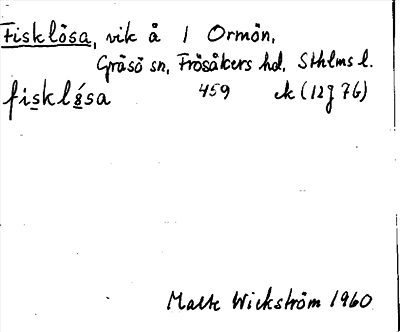 Fisklösa, vik å 1 Ormön,
Gräsö sn, Frösåkers hd, Sthlms l.
fisklǿsa 459 ek (12j 76)
Malte Wickström 1960